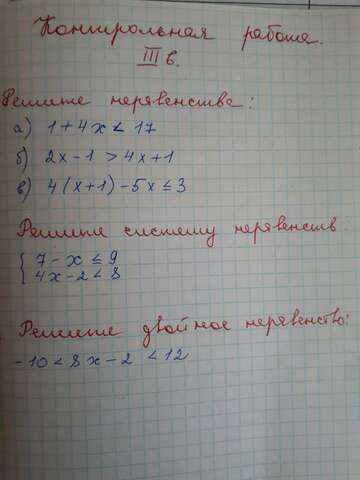 Контрольная работа.
III в.
Решите неравенства:
а) 1+4x < 17
б) 2x-1 > 4x+1
в) 4(x+1)-5x ≤ 3
Решите систему неравенств
{7-x ≤ 9
4x-2 < 8
Решите двойное неравенство:
-10 < 8x-2 < 12